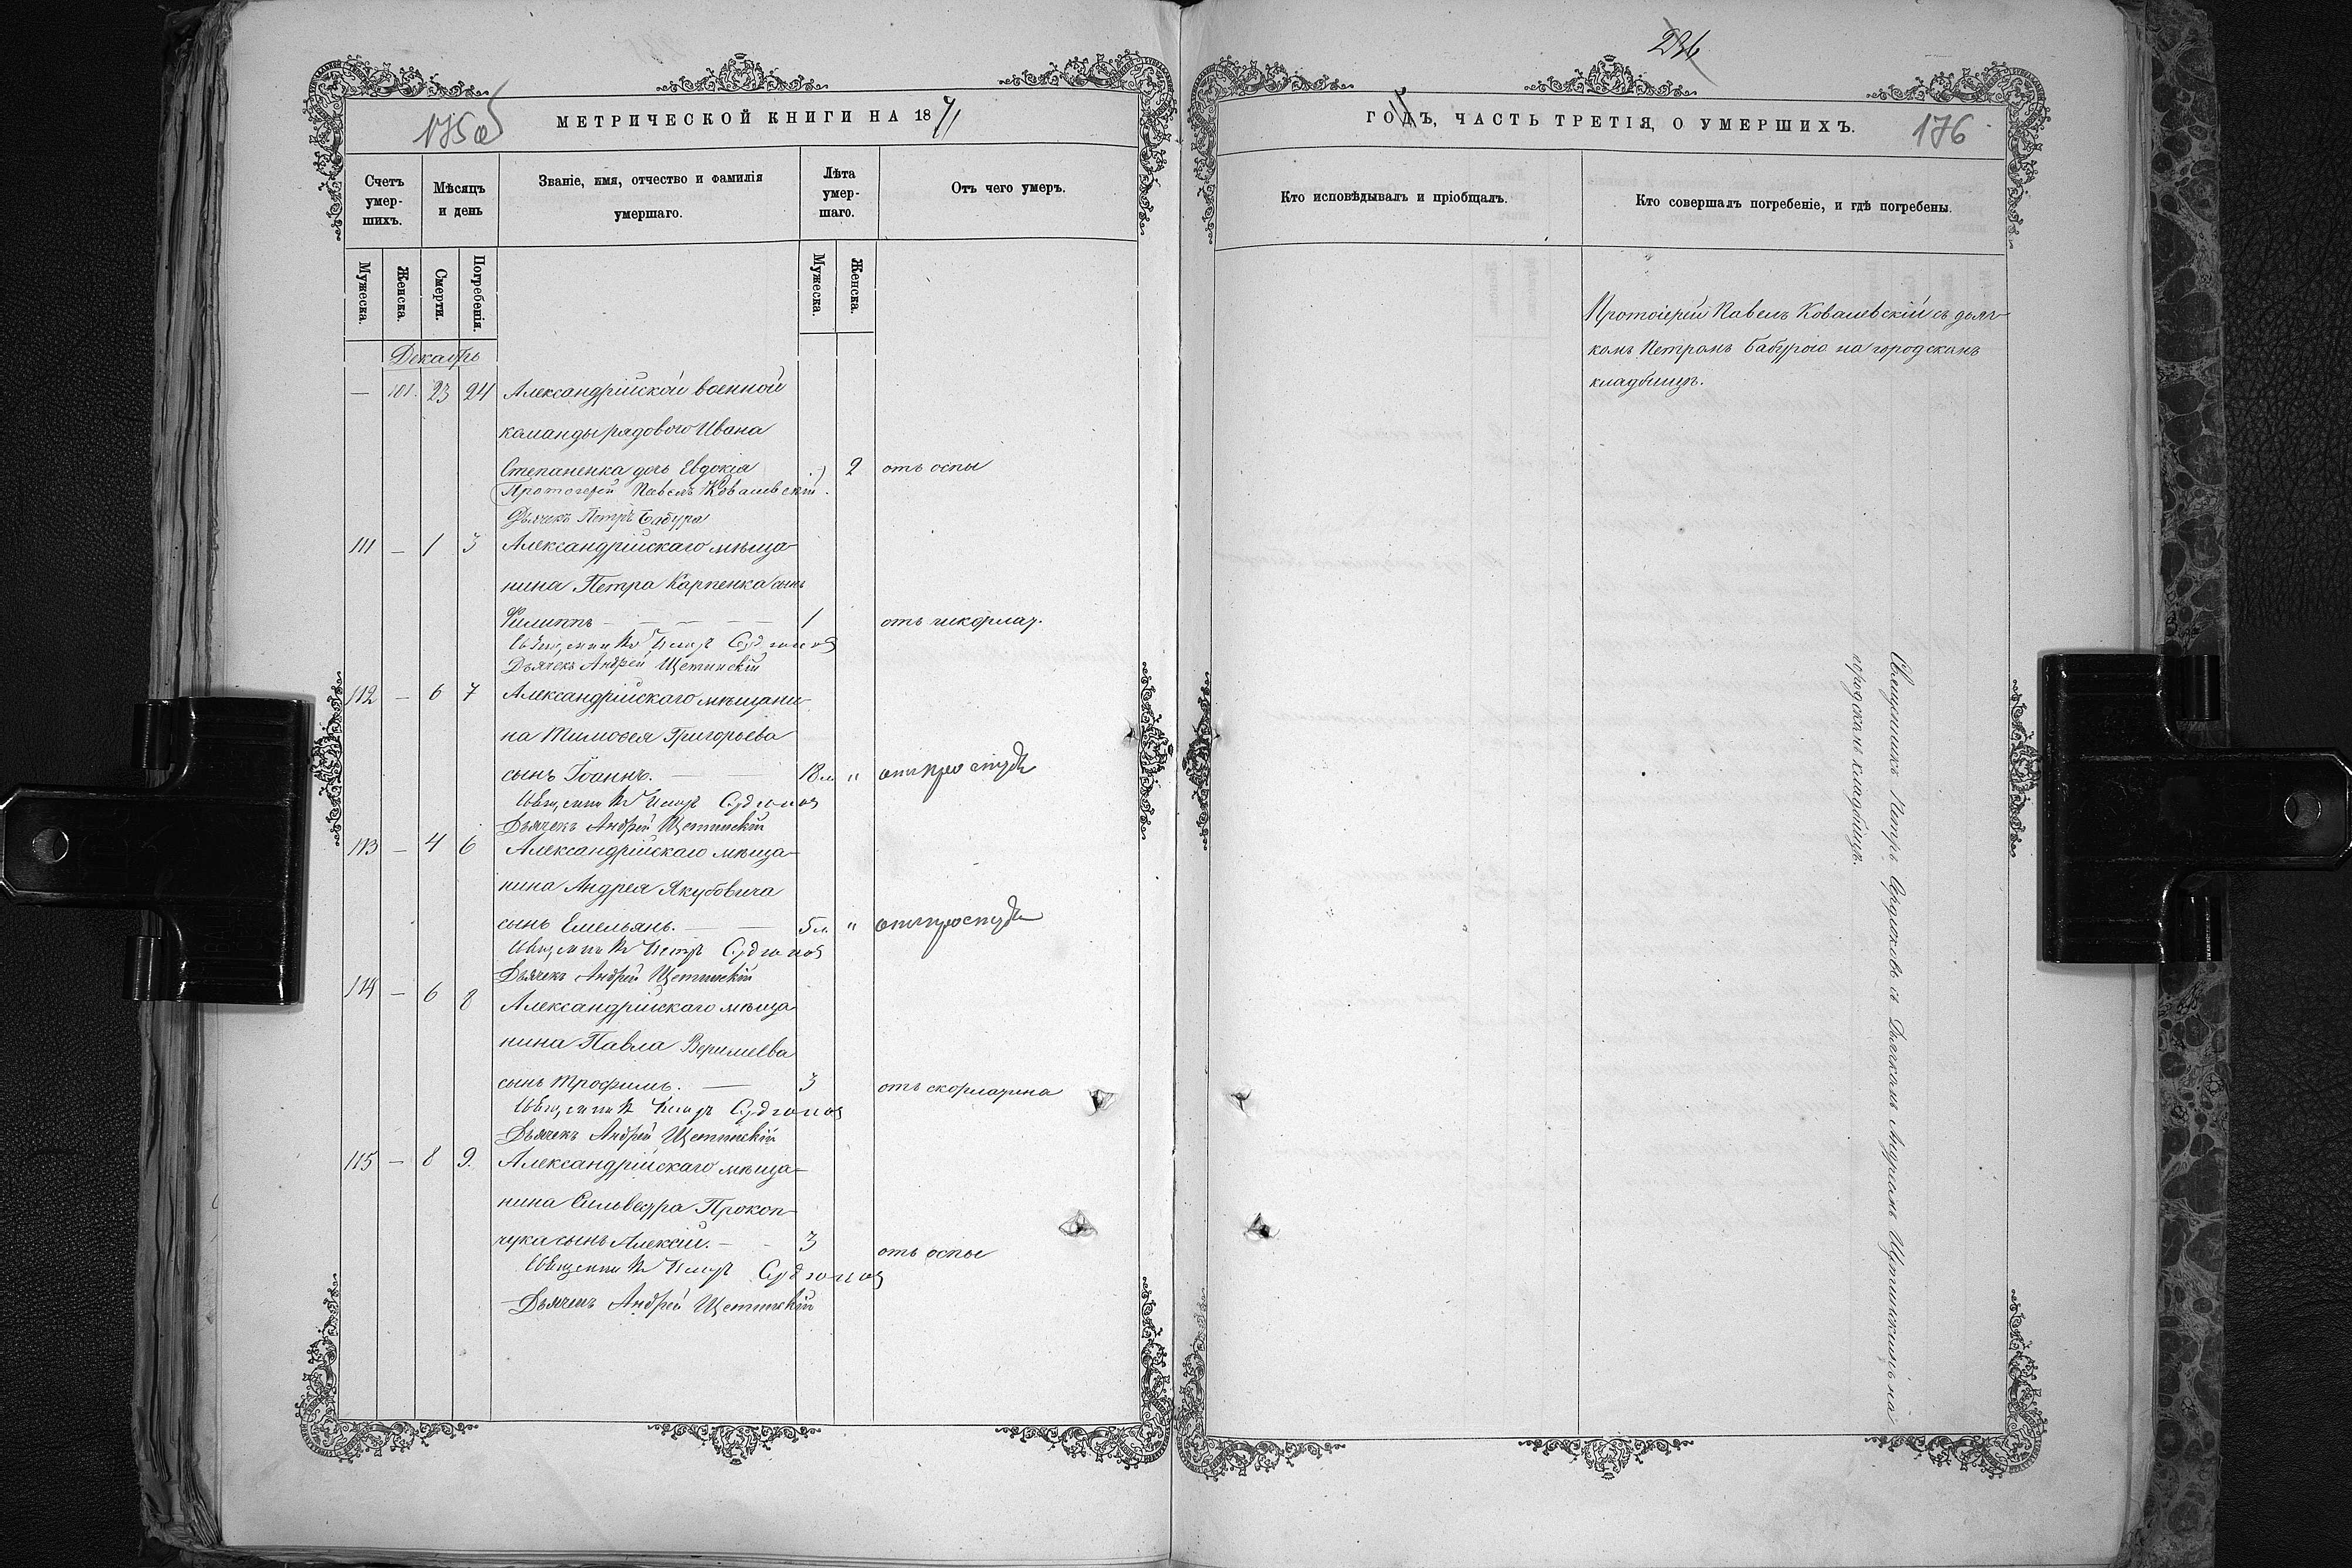 175 об
МЕТРИЧЕСКОЙ КНИГИ НА 1871
Счетъ умер-шихъ.
Мѣсяцъ и день
Званіе, имя, отчество и фамилія умершаго.
Лѣта умер-шаго.
Отъ чего умеръ.
Мужеска.
Женска.
Смерти.
Погребенія.
Мужеска.
Женска.
Декабрь
— 101. 23 24 Александрійской военной
команды рядового Ивана
Степаненка дочь Евдокія 2 отъ оспы
Протоіерей Павелъ Ковалевскій.
Дьячекъ Петръ Бабура
111 — 1 3 Александрійскаго мѣща-
нина Петра Карпенка сынъ
Филиппъ — — — — 1 отъ
Священникъ Петръ
Дьячекъ Андрей Щетинскій
112 — 6 7 Александрійскаго мѣщани-
на Тимофея Григорьева
сынъ Іоаннъ. — — 18 м " отъ простуды
Священникъ Петръ
Дьячекъ Андрей Щетинскій
113 — 4 6 Александрійскаго мѣща-
нина Андрея Якубовича
сынъ Емельянъ. — — 5 м. " отъ простуды
Священникъ Петръ
Дьячекъ Андрей Щетинскій
114 — 6 8 Александрійскаго мѣща-
нина Павла
сынъ Трофимъ. — 3 отъ скорлатина
Священникъ Петръ
Дьячекъ Андрей Щетинскій
115 — 8 9. Александрійскаго мѣща-
нина Сильвестра Прокоп-
чука сынъ Алексій. — - 3 отъ оспы
Священникъ Петръ
Дьячекъ Андрей Щетинскій
236
ГОДЪ, ЧАСТЬ ТРЕТІЯ, О УМЕРШИХЪ.
176
Кто исповѣдывалъ и пріобщалъ.
Кто совершалъ погребеніе, и гдѣ погребены.
Протоіерей Павелъ Ковалевскій съ дьяч-
комъ Петромъ Бабурою на городскомъ
кладбищѣ.
Священникъ Петръ съ Дьячкомъ Андреемъ Щетинскимъ на
городскомъ кладбищѣ.